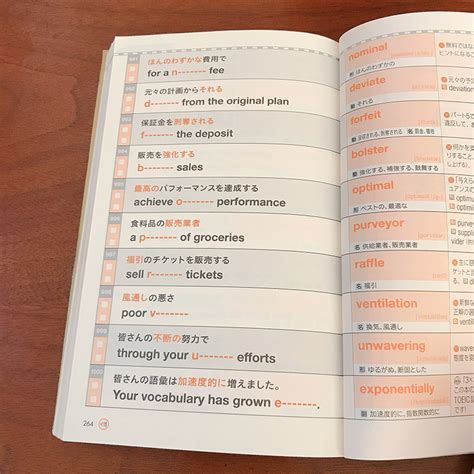 991
ほんのわずかな費用で
for a n------- fee
992
元々の計画からそれる
d------- from the original plan
993
保証金を剥奪される
f------- the deposit
994
販売を強化する
b------- sales
995
最高のパフォーマンスを達成する
achieve o------- performance
996
食料品の販売業者
a p------- of groceries
997
福引のチケットを販売する
sell r------- tickets
998
風通しの悪さ
poor v-------
999
皆さんの不断の努力で
through your u------- efforts
1000
皆さんの語彙は加速度的に増えました。
Your vocabulary has grown e-------.
264
nominal
形 ほんのわずかの
deviate
動 それる
forfeit
動 没収される、剥奪される 名 罰金、犠牲
bolster
動 強化する、補強する、鼓舞する
optimal
形 ベストの、最適な
purveyor
名 供給業者、販売業者
raffle
名 福引
ventilation
名 換気、風通し
unwavering
形 ゆるがぬ、断固とした
exponentially
副 加速度的に、指数関数的に